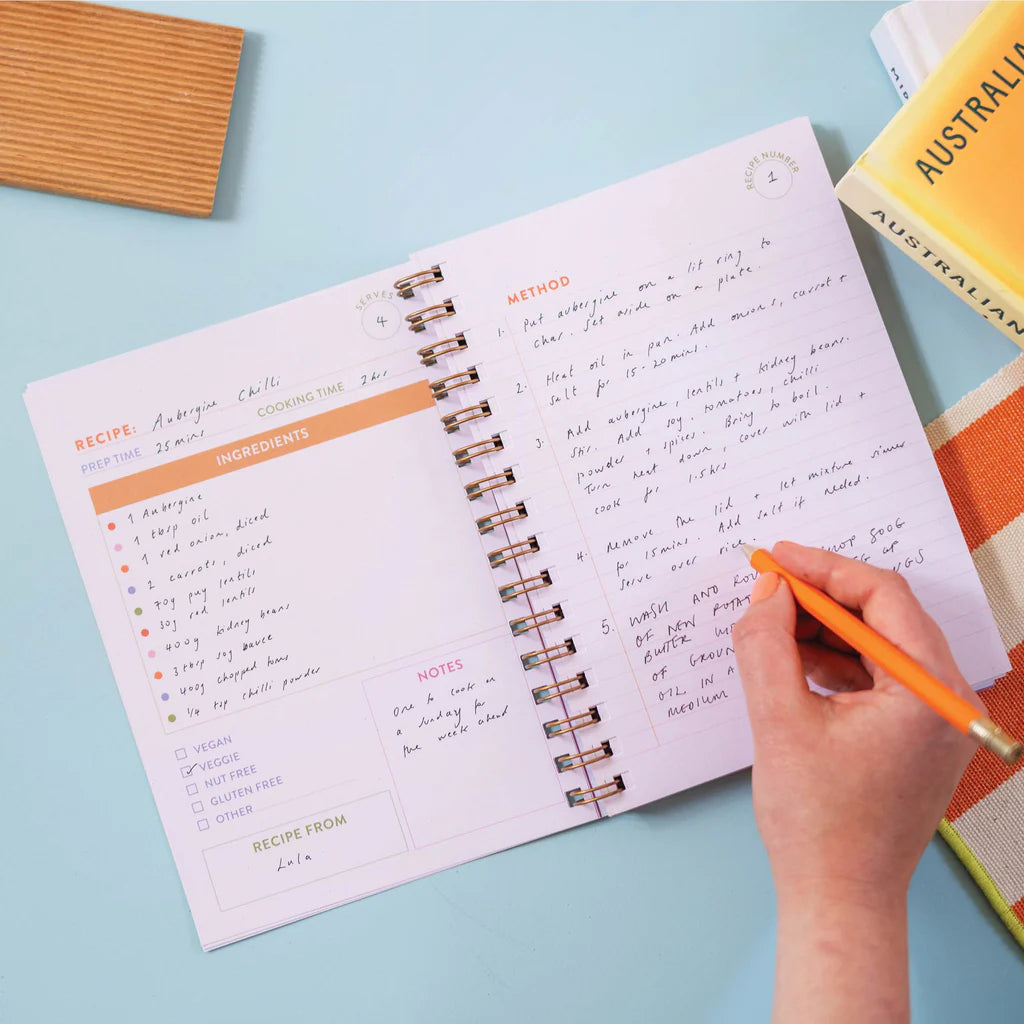 SERVES
4
RECIPE: Aubergine Chilli
PREP TIME 25 mins COOKING TIME 2 hrs
INGREDIENTS
1 Aubergine
1 tbsp oil
1 red onion, diced
2 carrots, diced
70g puy lentils
30g red lentils
400g kidney beans
3 tbsp soy sauce
400g chopped toms
1/4 tsp chilli powder
VEGAN
✓ VEGGIE
NUT FREE
GLUTEN FREE
OTHER
NOTES
One to cook on
a sunday for
the week ahead
RECIPE FROM
Lula
RECIPE NUMBER
1
METHOD
1. Put aubergine on a lit ring to
char. Set aside on a plate.
2. Heat oil in pan. Add onions, carrot +
salt for 15-20 mins.
3. Add aubergine, lentils + kidney beans.
Stir. Add soy, tomatoes, chilli
powder + spices. Bring to boil
Turn heat down, cover with lid +
cook for 1.5hrs
4. Remove the lid + let mixture simmer
for 15 mins. Add salt if needed.
Serve over rice.
5. WASH AND 800G
OF NEW
BUTTER
OF
OIL IN A
MEDIUM
AUSTRALIA
AUSTRALIAN